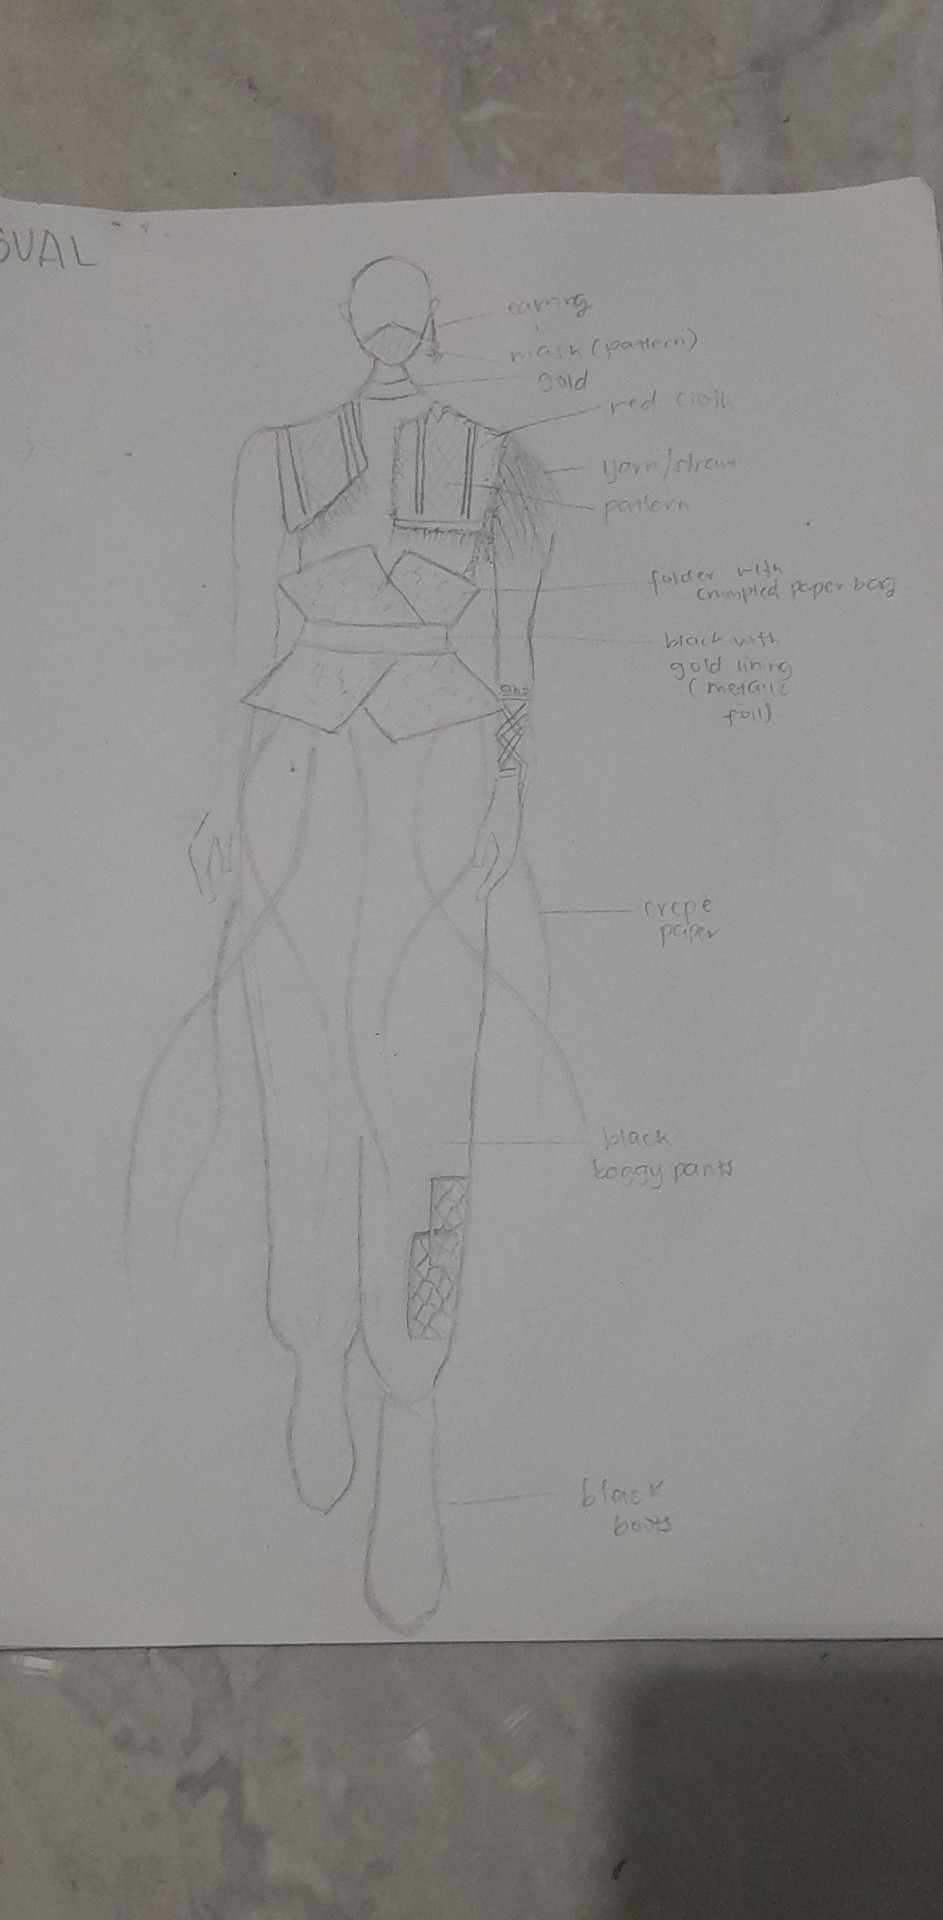 earring
mask (pattern)
gold
red cloth
yarn/straw
pattern
folder with
crumpled paper bag
black with
gold lining
(metalic
foil)
crepe
paper
black
boggy pants
black
boots